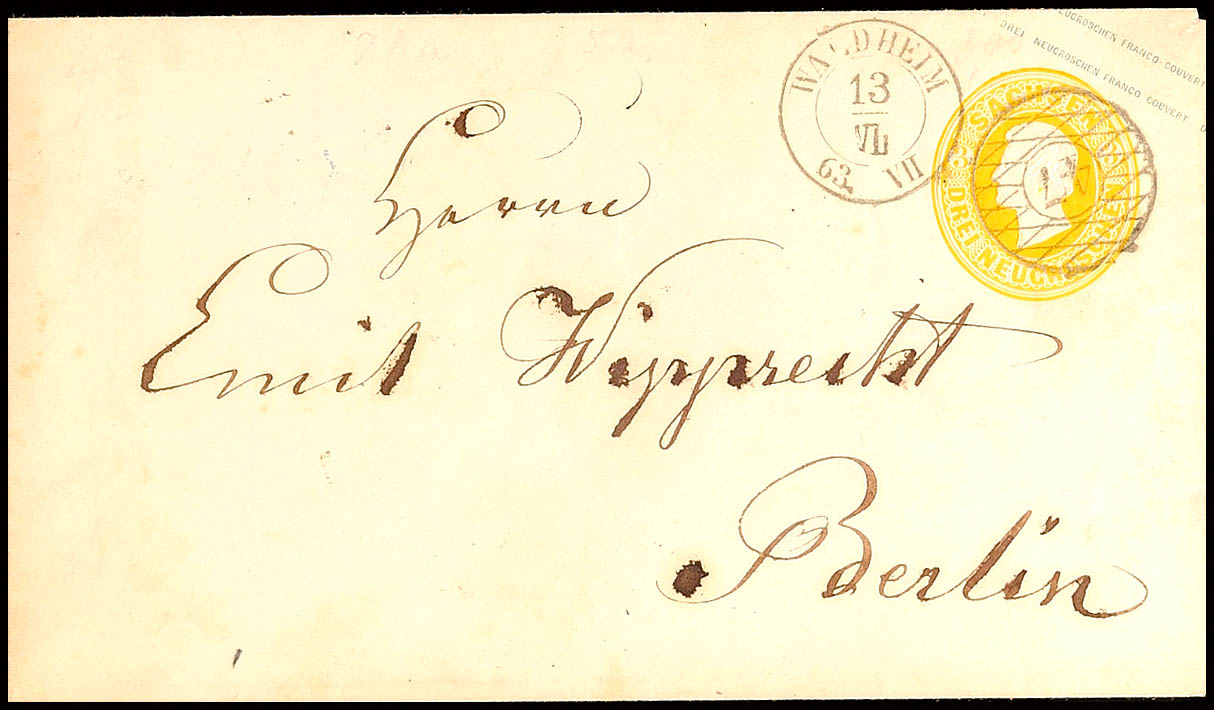 NEUGROSCHEN FRANCO-COUVERT
DREI NEUGROSCHEN FRANCO COUVERT D
WALDHEIM
13
VII
63. VII
SACHSEN
DREI NEUGROSCHEN
Herrn
Emil Wipprecht
Berlin